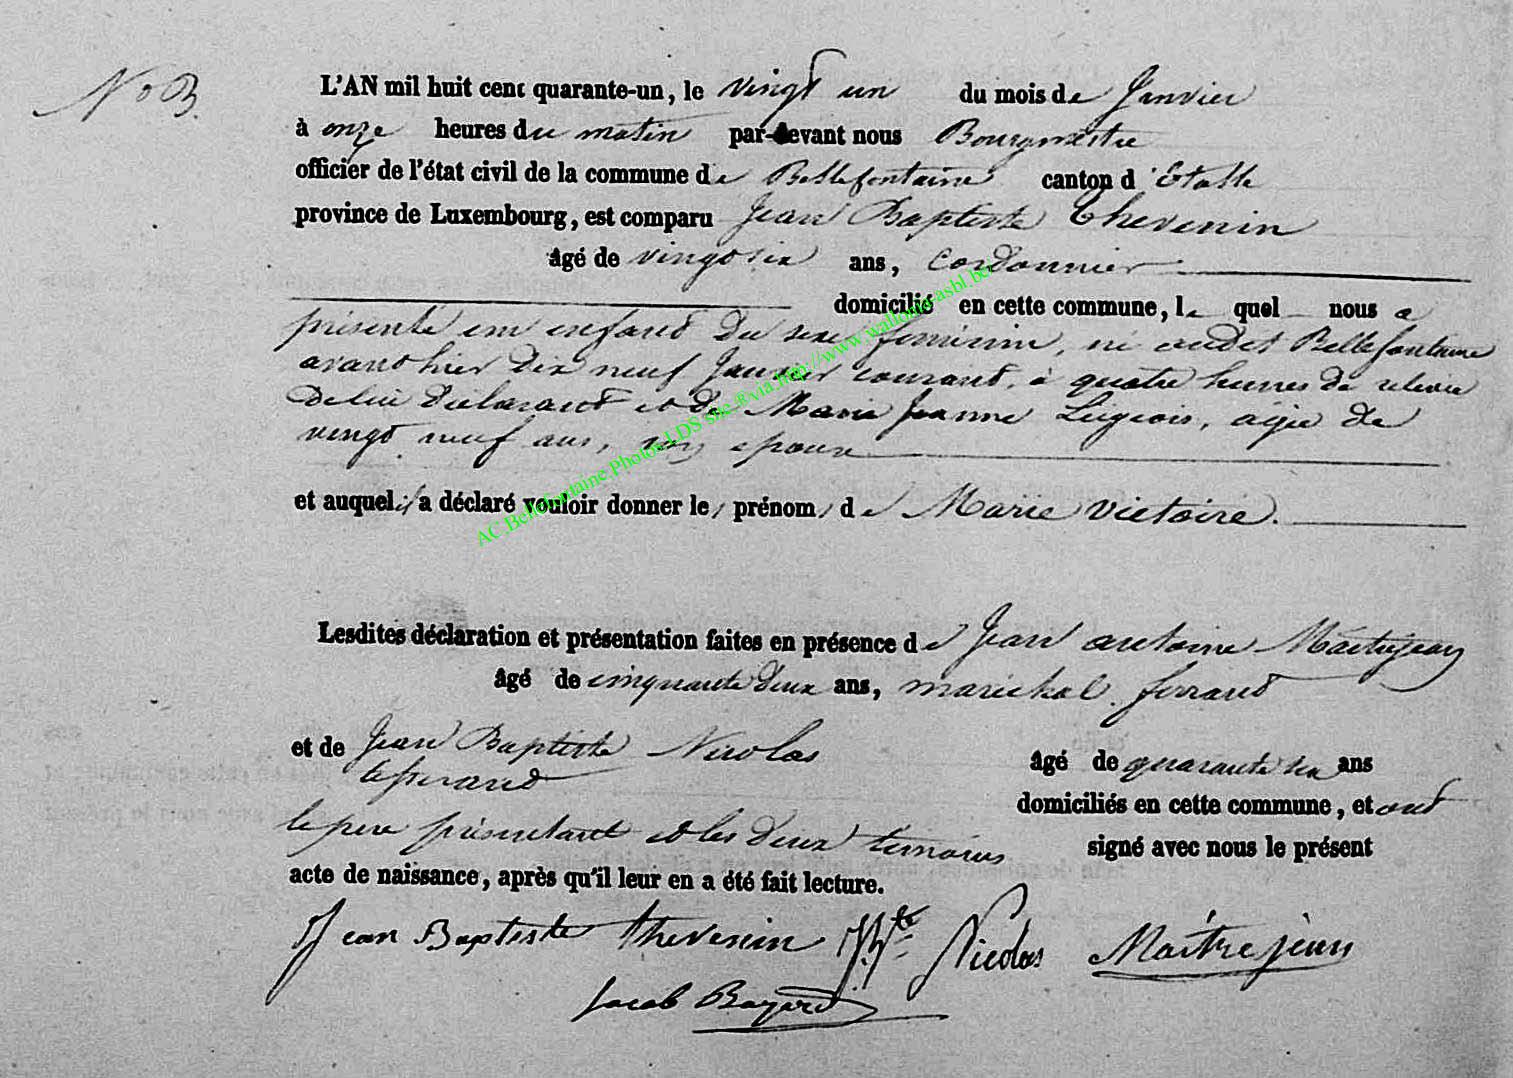 N° 3.
L'AN mil huit cent quarante-un, le vingt un du mois de Janvier
à onze heures du matin par-devant nous Bourgmestre
officier de l'état civil de la commune de Bellefontaine canton d'Etalle
province de Luxembourg, est comparu Jean Baptiste Thevenin
âgé de vingt six ans, cordonnier
domicilié en cette commune, le quel nous a
présenté un enfant du sexe feminin, né audit Bellefontaine
avant hier dix neuf Janvier courant, à quatre heures de relevée
de lui déclarant et de Marie Jeanne Liégeois, agée de
vingt neuf ans, son epouse
et auquel il a déclaré vouloir donner les prénoms de Marie Victoire.
Lesdites déclaration et présentation faites en présence de Jean antoine Maitrejean
âgé de cinquante deux ans, maréchal ferrant
et de Jean Baptiste Nicolas
âgé de quarante six ans
domiciliés en cette commune, et ont
le pere présentant et les deux témoins signé avec nous le présent
acte de naissance, après qu'il leur en a été fait lecture.
Jean Baptiste thevenin J.Bte Nicolas Maitrejean
Jacob Bayard
AC.Bellefontaine.Photos LDS site &via http://www.wallonia-asbl.be/